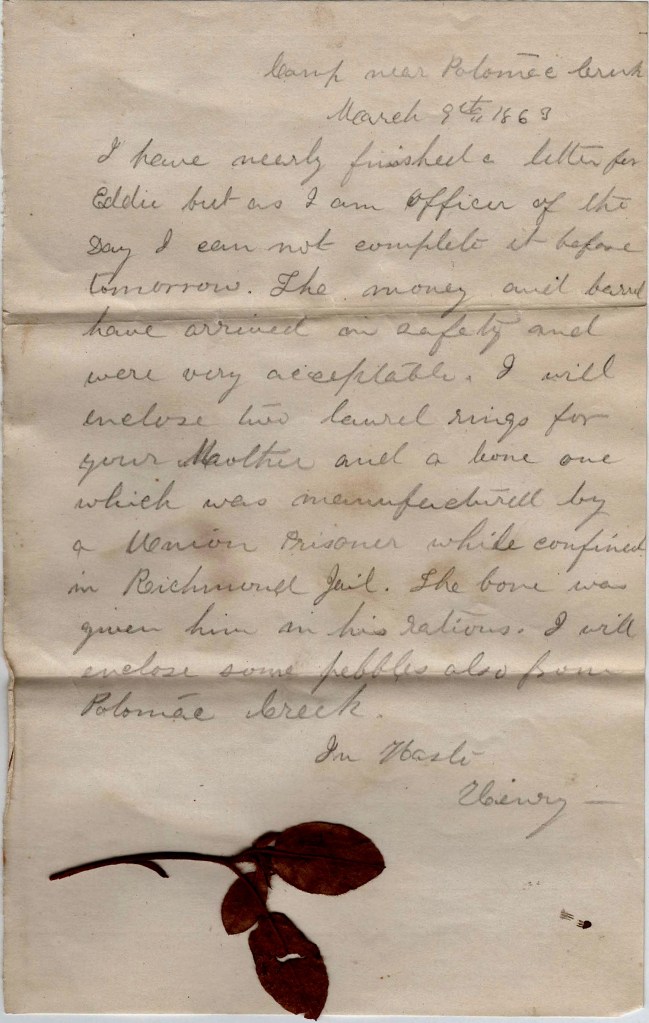 Camp near Potomac Creek
March 9th, 1863
I have nearly finished a letter for
Eddie but as I am Officer of the
Day I can not complete it before
tomorrow. The money and barrel
have arrived in safety and
were very acceptable. I will
enclose two laurel rings for
your Mother and a bone one
which was manufactured by
a Union Prisoner while confined
in Richmond Jail. The bone was
given him in his rations. I will
enclose some pebbles also from
Potomac Creek.
In Haste
Henry —